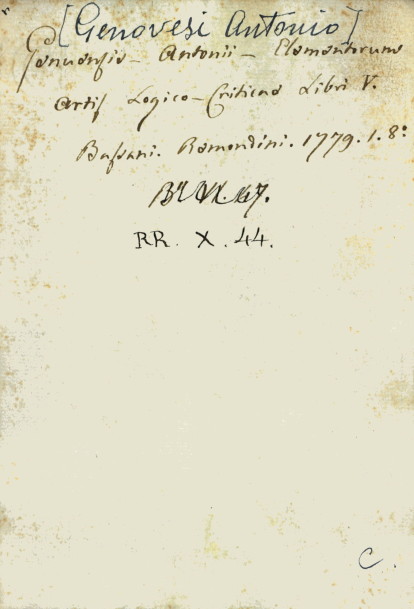 [Genovesi Antonio]
Genuensis - Antonii - Elementorum
Artis Logico-Criticae Libri V.
Bassani. Remondini. 1779. 1. 8°
RR. X. 44.
C.